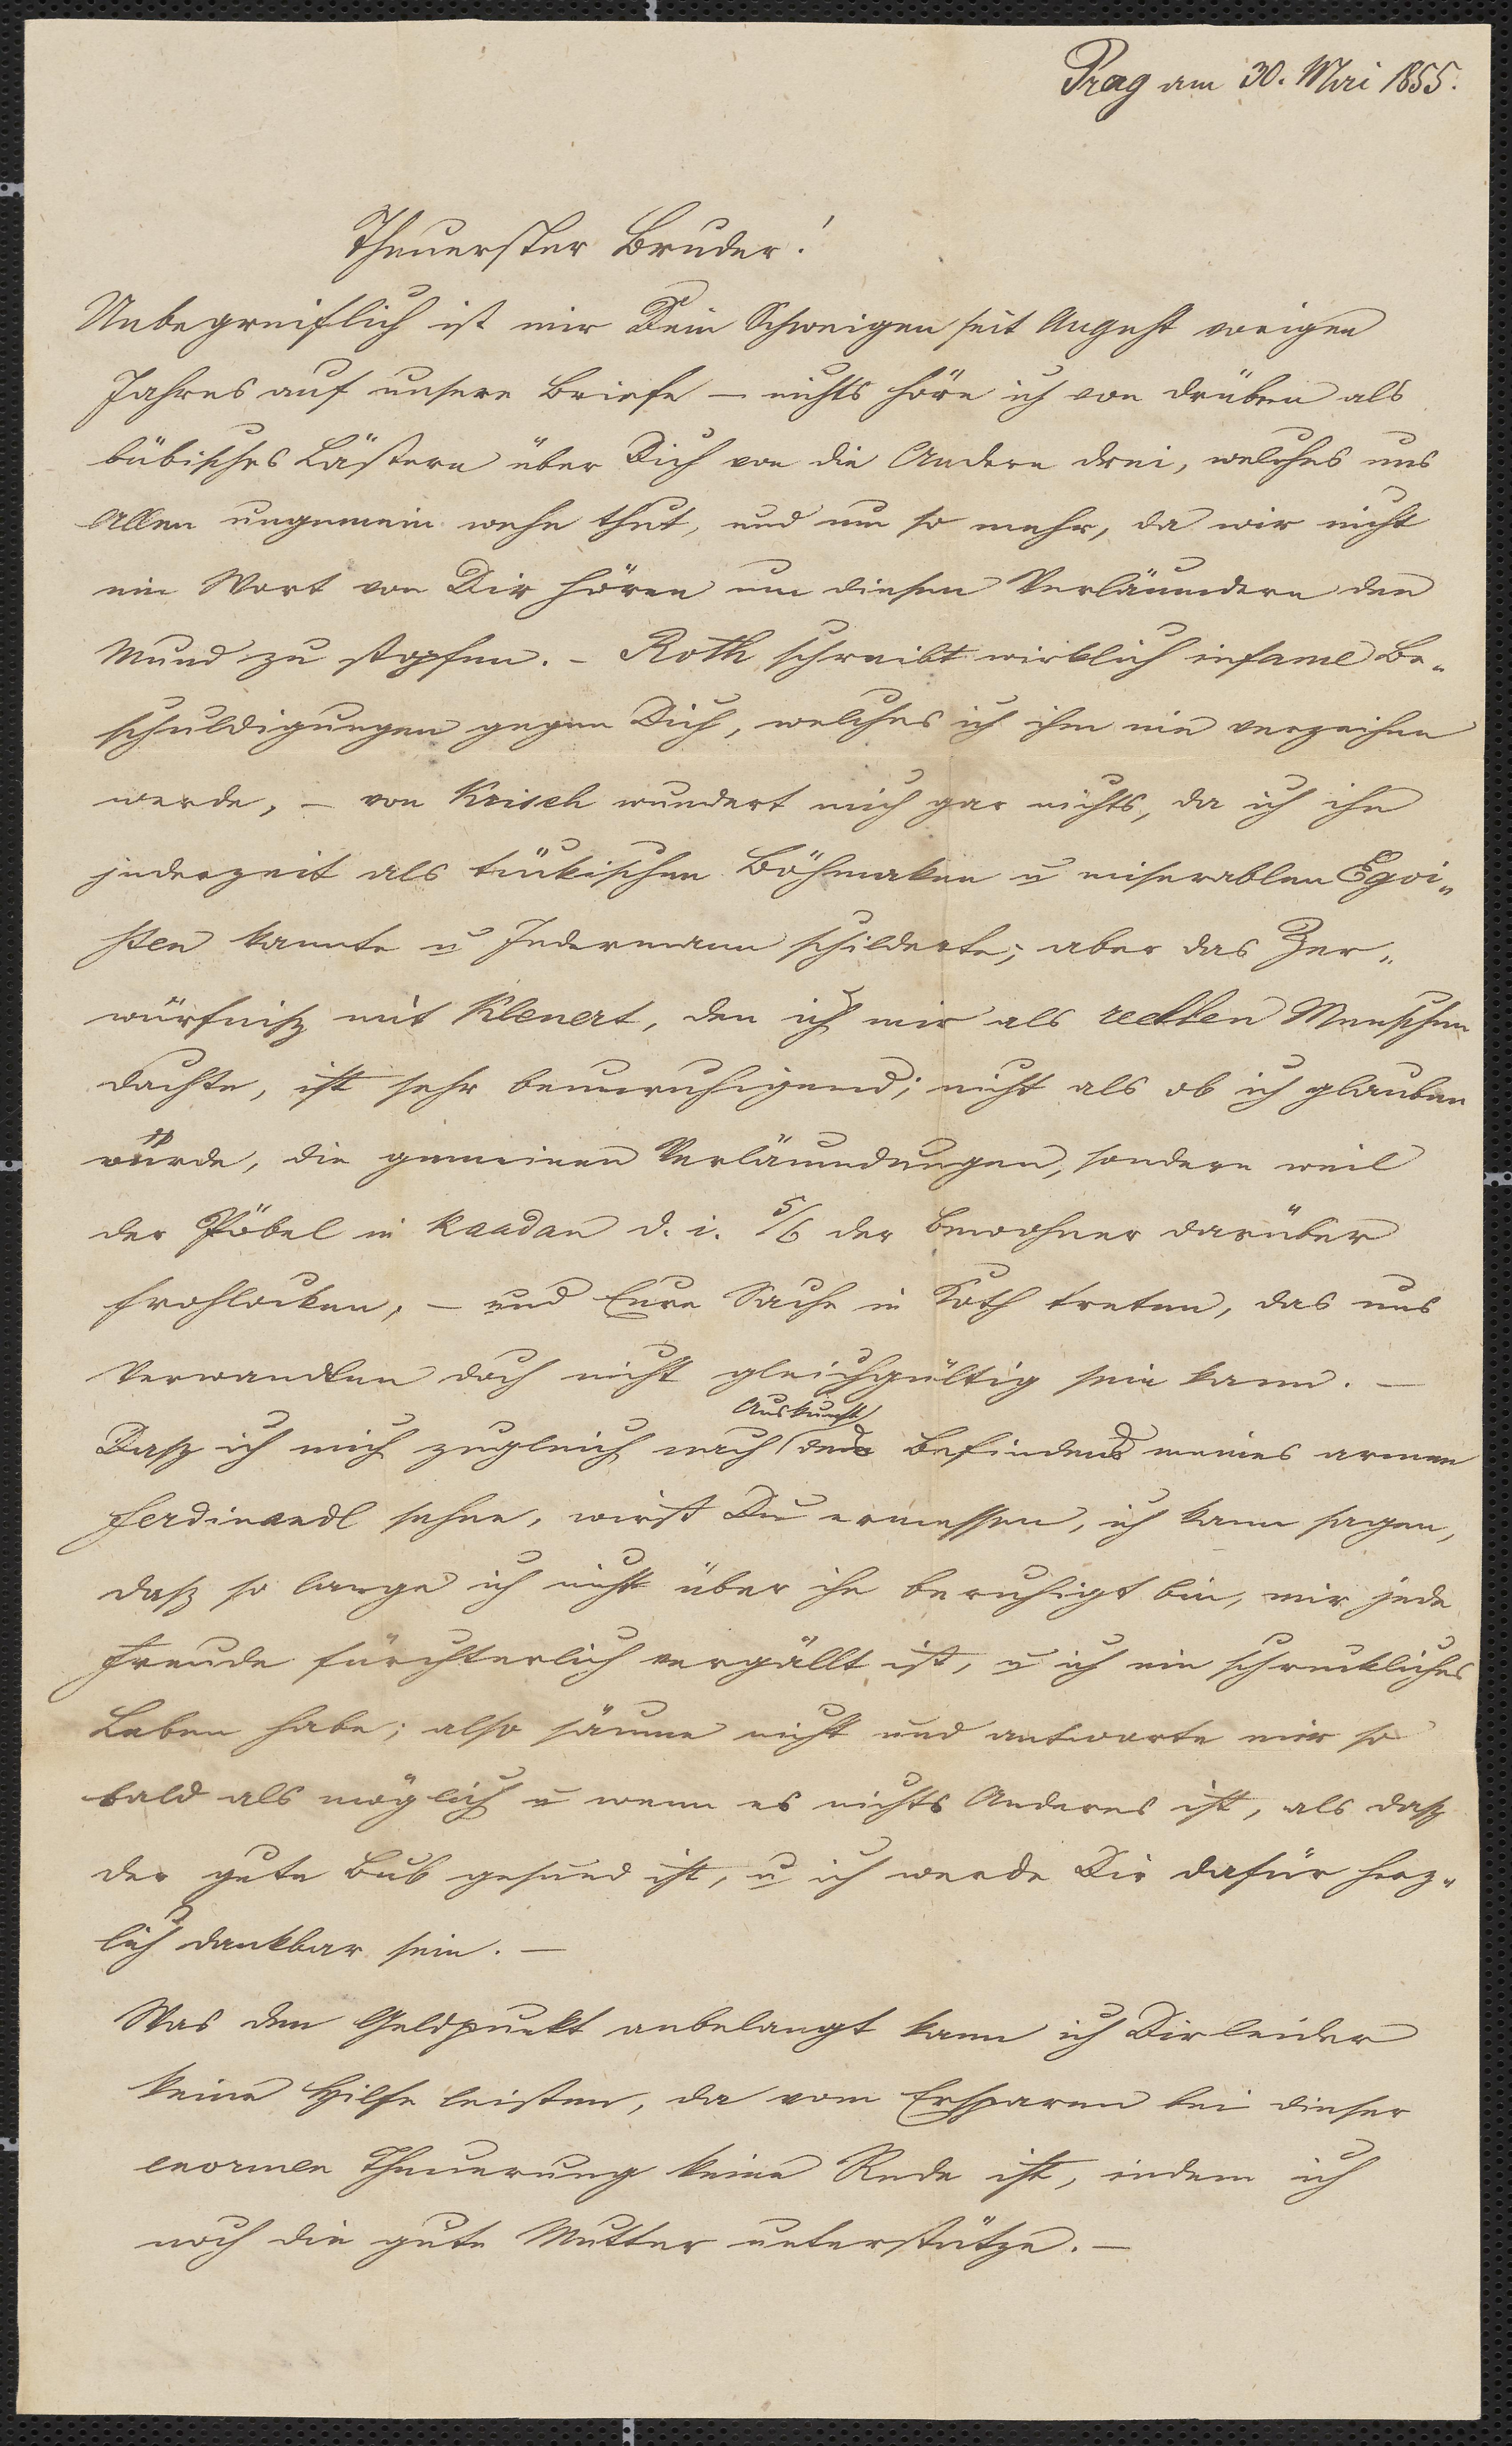 Prag am 30. Mai 1855.
Theuerster Bruder!
Unbegreiflich ist mir Dein Schweigen seit August vorigen
Jahres auf unsere Briefe — nichts höre ich von drüben als
bübisches Lästern über Dich von die Andern drei, welches uns
Allen ungemein wehe thut, und um so mehr, da wir nicht
ein Wort von Dir hören um diesen Verläumdern den
Mund zu stopfen. – Roth schreibt wirklich infame Be„
schuldigungen gegen Dich, welches ich ihm nie verzeihen
werde, – von Krisch wundert mich gar nichts, da ich ihn
jederzeit als tückischen Böhmaken u miserablen Egoi„
sten kannte u Jedermann schilderte; aber das Zer„
würfniß mit Klenert, den ich mir als rechten Menschen
dachte, ist sehr beunruhigend; nicht als ob ich glauben
würde, die gemeinen Verläumdungen, sondern weil
der Pöbel in Kaadan d. i. 5/6 der Bewohner darüber
frohlocken, – und Eure Sache in Koth treten, das uns
Verwandten doch nicht gleichgültig sein kann. —
Auskunft
Daß ich mich zugleich nach des Befindens meines armen
Ferdinandl sehne, wirst Du ermessen, ich kann sagen,
daß so lange ich nicht über ihn beruhigt bin, mir jede
Freude fürchterlich vergällt ist, u ich ein schreckliches
Leben habe; also säume nicht und antworte mir so
bald als möglich u wenn es nichts Anderes ist, als daß
der gute Bub gesund ist, u ich werde Dir dafür herz„
lich dankbar sein. —
Was den Geldpunkt anbelangt kann ich Dir leider
keine Hilfe leisten, da vom Ersparen bei dieser
enormen Theuerung keine Rede ist, indem ich
noch die gute Mutter unterstütze. —